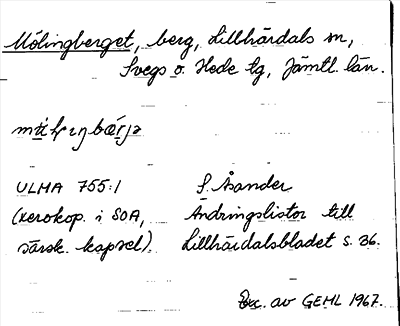 Mölingberget, berg, Lillhärdals sn,
Svegs o. Hede tg, Jämtl. län.
ULMA 755:1 S. Åsander
(xerokop. i SOA, Ändringslistor till
särsk. kapsel). Lillhärdalsbladet s. 36.
Exc. av GEHL 1967.